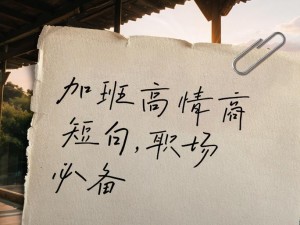 加班高情商
短句,职场
必备